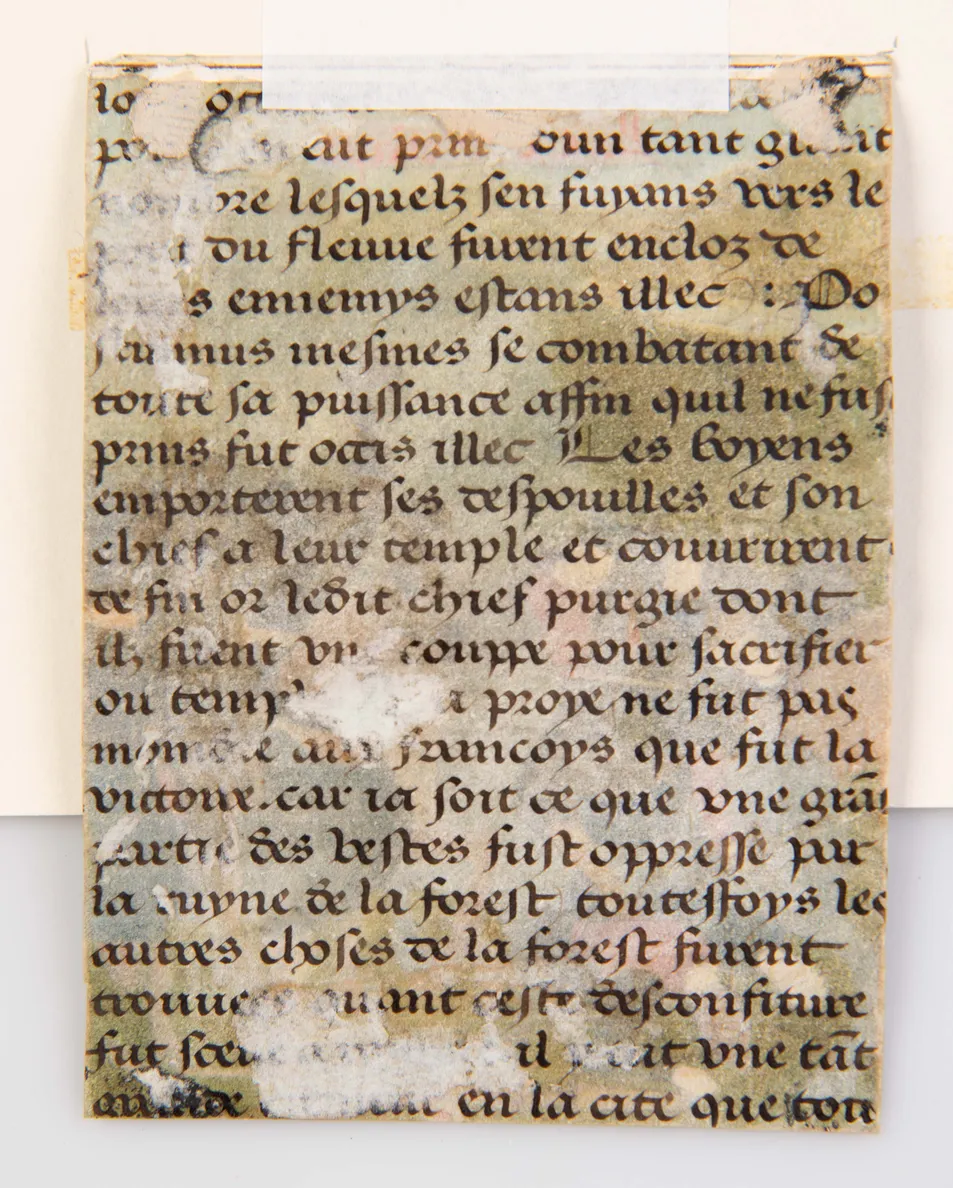 ait prin oun tant
lesquelz sen fuyans vers le
du fleuue furent encloz de
ennemys estans illec : Po
mesmes se combatant de
toute sa puissance affin quil ne fus
prins fut occis illec Les boyens
emporterent ses despouilles et son
chief a leur temple et couurirent
de fin or ledit chief purgie dont
ilz firent vne couppe pour sacrifier
ou proye ne fut pas
francoys que fut la
victoire. car ia soit ce que vne grā
partie des bestes fust oppresse par
la ruyne de la forest toutesfoys les
autres choses de la forest furent
trouuees quant ceste desconfiture
fut il vne tāt
en la cite que tou